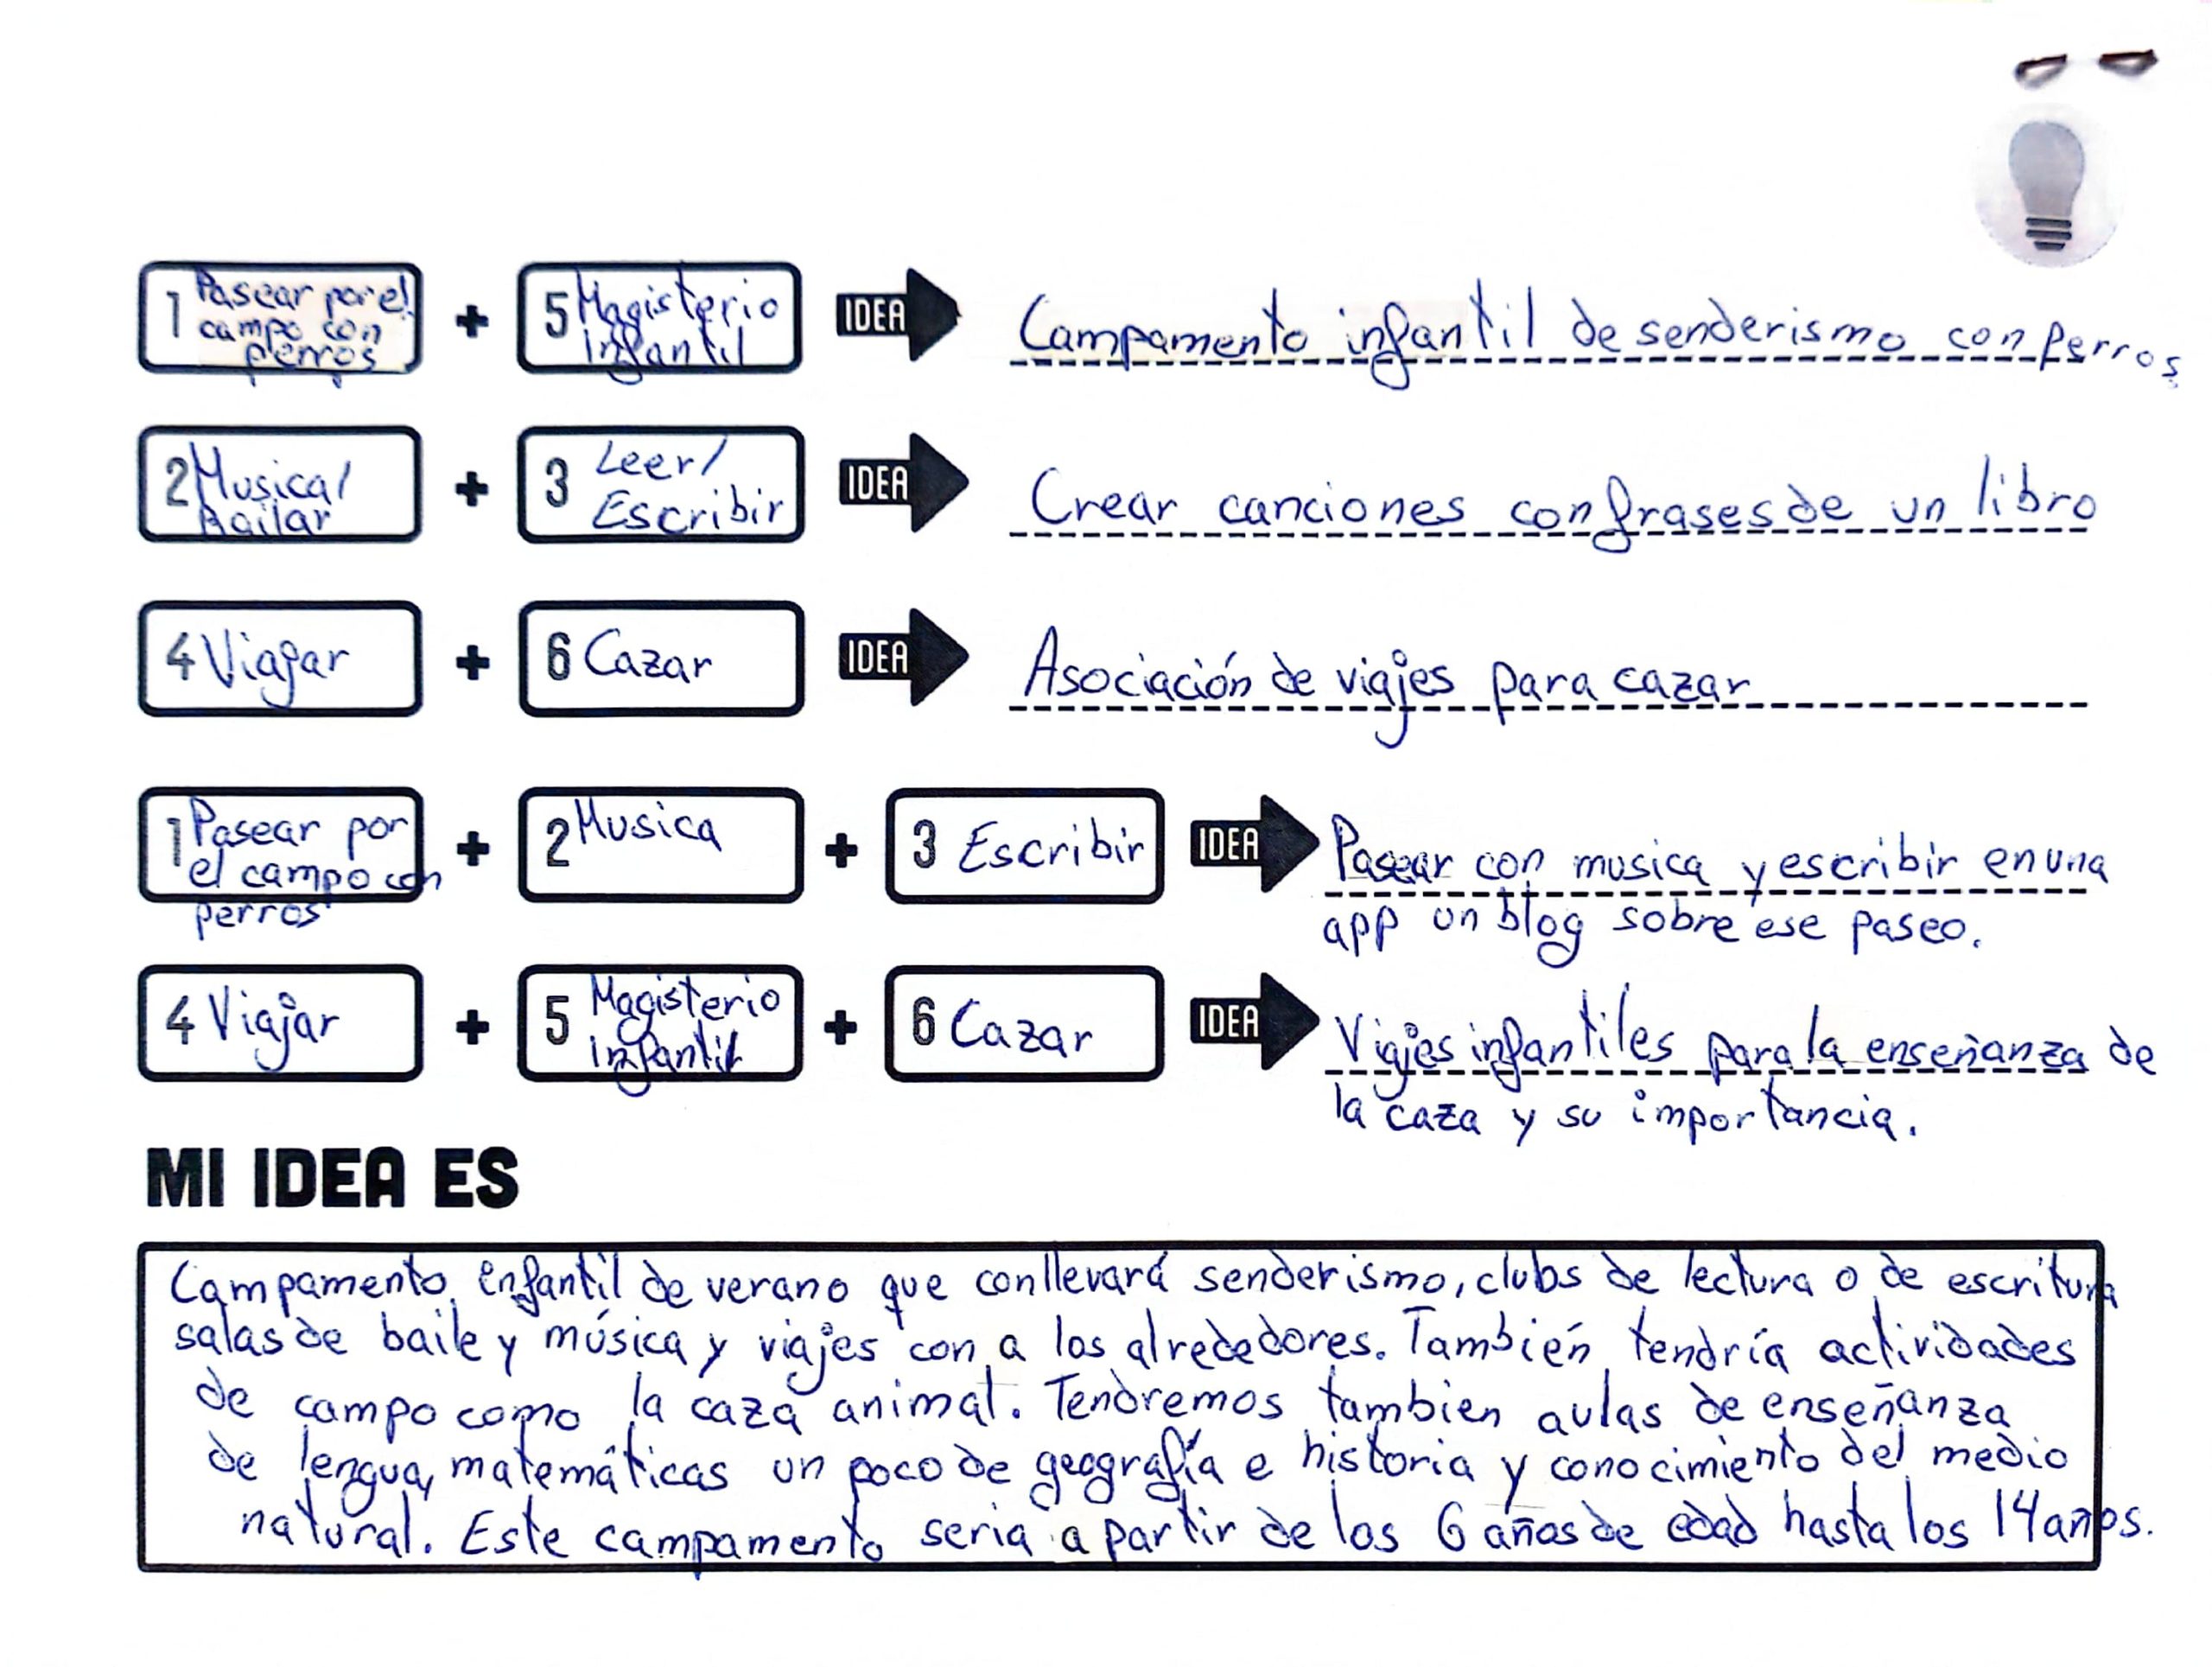 1 Pasear por el + 5 Magisterio IDEA Campamento infantil de senderismo con perros
campo con infantil
perros
2 Musica/ + 3 Leer/ IDEA Crear canciones con frases de un libro
Bailar Escribir
4 Viajar + 6 Cazar IDEA Asociación de viajes para cazar
1 Pasear por + 2 Musica + 3 Escribir IDEA Pasear con musica y escribir en una
el campo con app un blog sobre ese paseo.
perros
4 Viajar + 5 Magisterio + 6 Cazar IDEA Viajes infantiles para la enseñanza de
infantil la caza y su importancia.
MI IDEA ES
Campamento enfantil de verano que conllevará senderismo, clubs de lectura o de escritura
salas de baile y música y viajes con a los alrededores. También tendría actividades
de campo como la caza animal. Tendremos tambien aulas de enseñanza
de lengua, matemáticas un poco de geografía e historia y conocimiento del medio
natural. Este campamento seria a partir de los 6 años de edad hasta los 14 años.